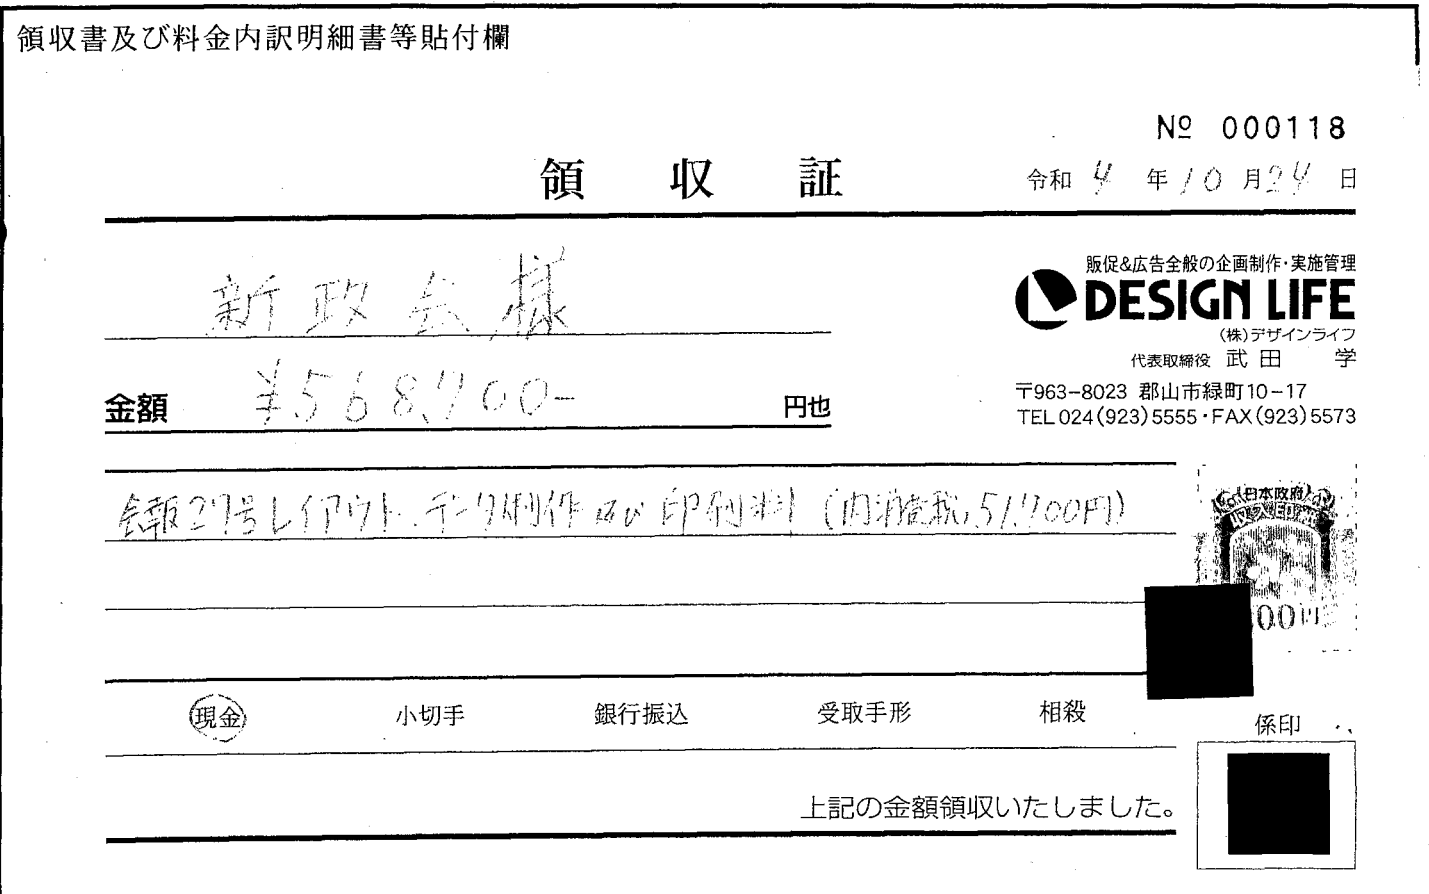 領収書及び料金内訳明細書等貼付欄
№ 000118
領収証
令和 4 年 10 月 24 日
新政会様
金額 ¥568,700- 円也
販促&広告全般の企画制作・実施管理
DESIGN LIFE
(株)デザインライフ
代表取締役 武田 学
〒963-8023 郡山市緑町10-17
TEL 024(923)5555・FAX(923)5573
会報27号レイアウト、データ制作及び印刷料(内消費税,51,700円)
日本政府
収入印紙
00円
現金 小切手 銀行振込 受取手形 相殺
係印
上記の金額領収いたしました。